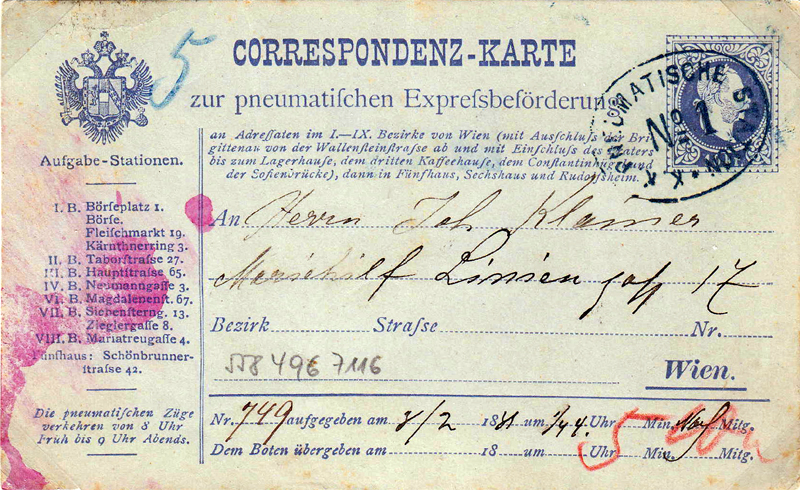 5
CORRESPONDENZ-KARTE
zur pneumatiſchen Expreſsbeförderung
an Adreſſaten im I.—IX. Bezirke von Wien (mit Ausſchluſs der Bri-
gittenau von der Wallenſteinſtraſse ab und mit Einſchluſs des Praters
bis zum Lagerhauſe, dem dritten Kaffeehauſe, dem Conſtantinhügel und
der Sofienbrücke), dann in Fünfhaus, Sechshaus und Rudolfsheim.
K. K. PNEUMATISCHE STATION
No 1
Aufgabe-Stationen.
I. B. Börſeplatz 1.
Börſe.
Fleiſchmarkt 19.
Kärnthnerring 3.
II. B. Taborſtraſse 27.
III. B. Hauptſtraſse 65.
IV. B. Neumanngaſſe 3.
VI. B. Magdalenenſt. 67.
VII. B. Siebenſterng. 13.
Zieglergaſſe 8.
VIII. B. Mariatreugaſſe 4.
Fünfhaus: Schönbrunner-
ſtraſse 42.
Die pneumatiſchen Züge
verkehren von 8 Uhr
Früh bis 9 Uhr Abends.
An Herrn Joh Klamer
Mariahilf Liniengasse 17
Bezirk Straſse Nr.
558 496 7116
Wien.
Nr. 749 aufgegeben am 8/2 1881 um 3/44. Uhr Min. Nach Mitg.
Dem Boten übergeben am 18 um 5 Uhr 40 Min. Mitg.